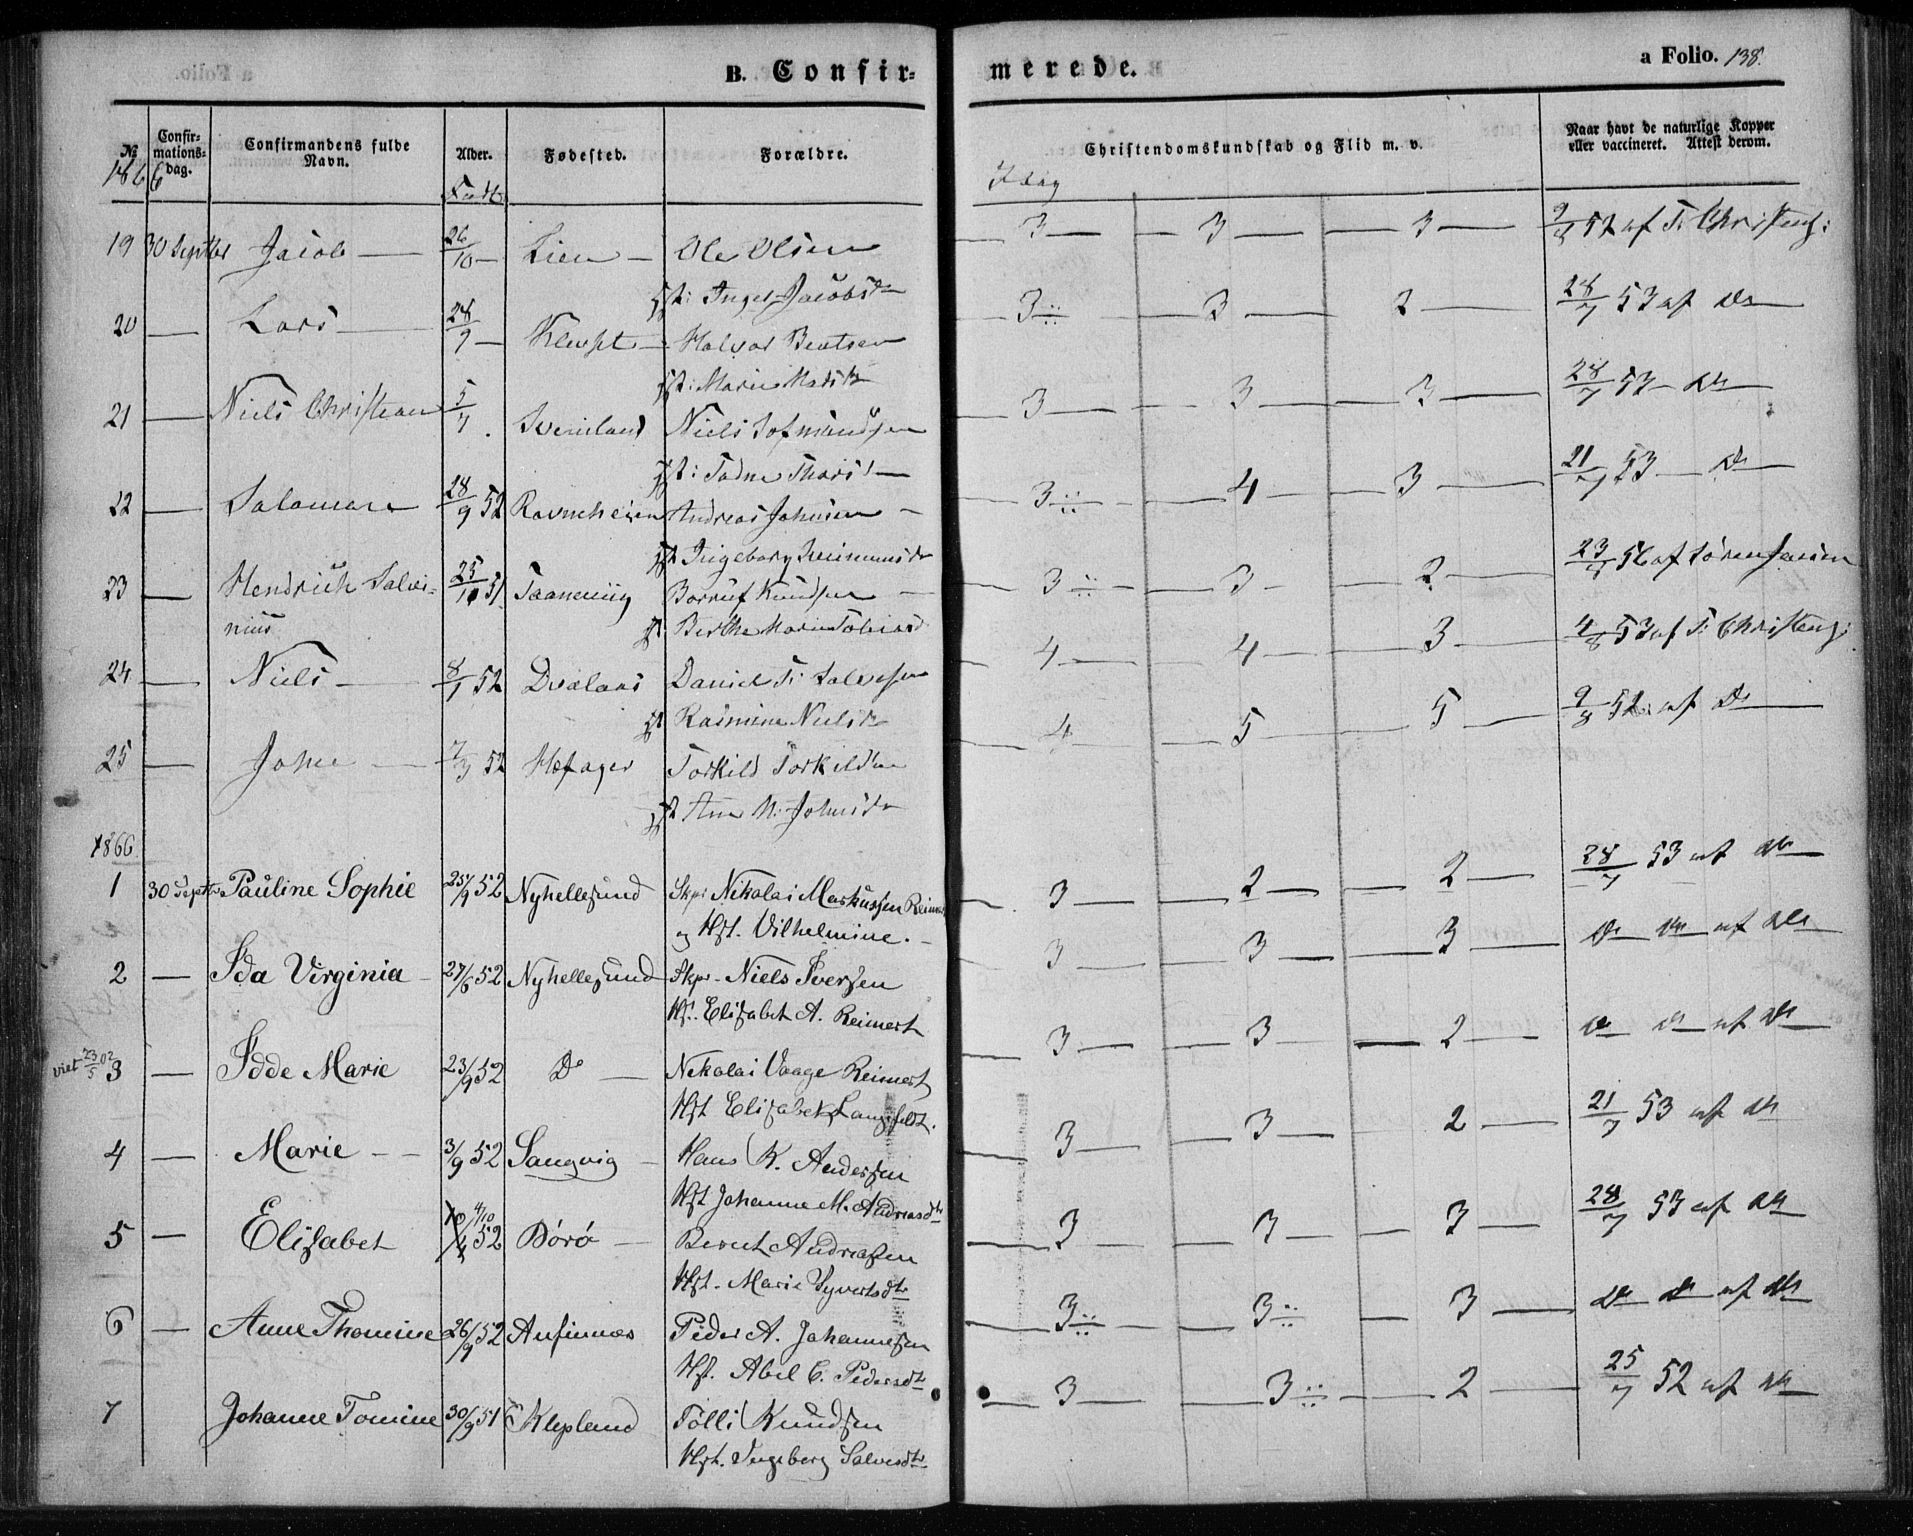 B. Confirmerede.
a Folio. 138.
№
Confirmationsdag.
Confirmandens fulde Navn.
Alder.
Fødested.
Forældre.
Christendomskundskab og Flid m. v.
Naar havt de naturlige Kopper eller vaccineret. Attest derom.
1866
Født
19 30 Septbr Jacob — 26/10 — Lien — Ole Olsen
Hst: Inger Jacobsdr
3 — 3 — 3 — 9/8 52 af T. Christens:
20 — Lars — 28/9 — Klepst — Halvor Bentsen
Hst: Marie Madsdr
3 — 3 — 2 — 28/7 53 af Do
21 — Niels Christian 5/7 Sveinland Niels
3 — 3 — 3 — 28/7 53 — Do
22 — Salomon 28/9 52 Ravneheien Andreas Johnsen —
Hst Ingeborg
3 — 4 — 3 — 21/7 53 — Do
23 — Hendrich Salvi-
nius 25/10 51 Taanevig Knudsen —
Hst. Berthe Marie Tobiasd
3 — 3 — 2 — 23/8 56 af Søren Jansen
24 — Niels — 8/1 52 Dvalaas Daniel T. Salvesen
Hst Rasmine Nielsdr
4 — 4 — 3 — 4/8 53 af T. Christens:
25 — John — 7/3 52 Høfager Torkild Torkildsen
Hst Ane M. Johnsdr
4 — 5 — 5 — 9/8 52 af Do
1866
1 30 Septbr Pauline Sophie 25/9 52 Nyhellesund Skpr Nikolai Markussen Reimert
og Hst. Vilhelmine. —
3 — 2 — 2 — 28/7 53 af Do
2 — Ida Virginia — 27/6 52 Nyhellesund Skpr. Niels Iversen
Hst. Elisabet A. Reimert
3 — 3 — 3 — Do Do af Do
viet 23/5 02
3 — Idde Marie 23/9 52 Do — Nikolai Vaage Reimert
Hst Elisabet Langfeldt.
3 — 3 — 2 — Do Do af Do
4 — Marie — — 3/9 52 Sangvig — Hans K. Andersen
Hst Johanne M. Andreasdtr
3 — 3 — 2 — 21/7 53 af Do
5 — Elisabet 4/10 52 Børø — Bernt Andreasen
Hst. Marie Syvertsdtr
3 — 3 — 3 — 28/7 53 af Do
6 — Anne Thomine 26/9 52 Anfinnæs Peder A. Johannesen
Hst. Abel C. Pedersdtr
3 — 3 — 3 — Do Do af Do
7 Johanne Tomine 30/9 51 Klepland Tolli Knudsen
Hst. Ingeborg Salvesdtr
3 — 3 — 2 — 25/7 52 af Do